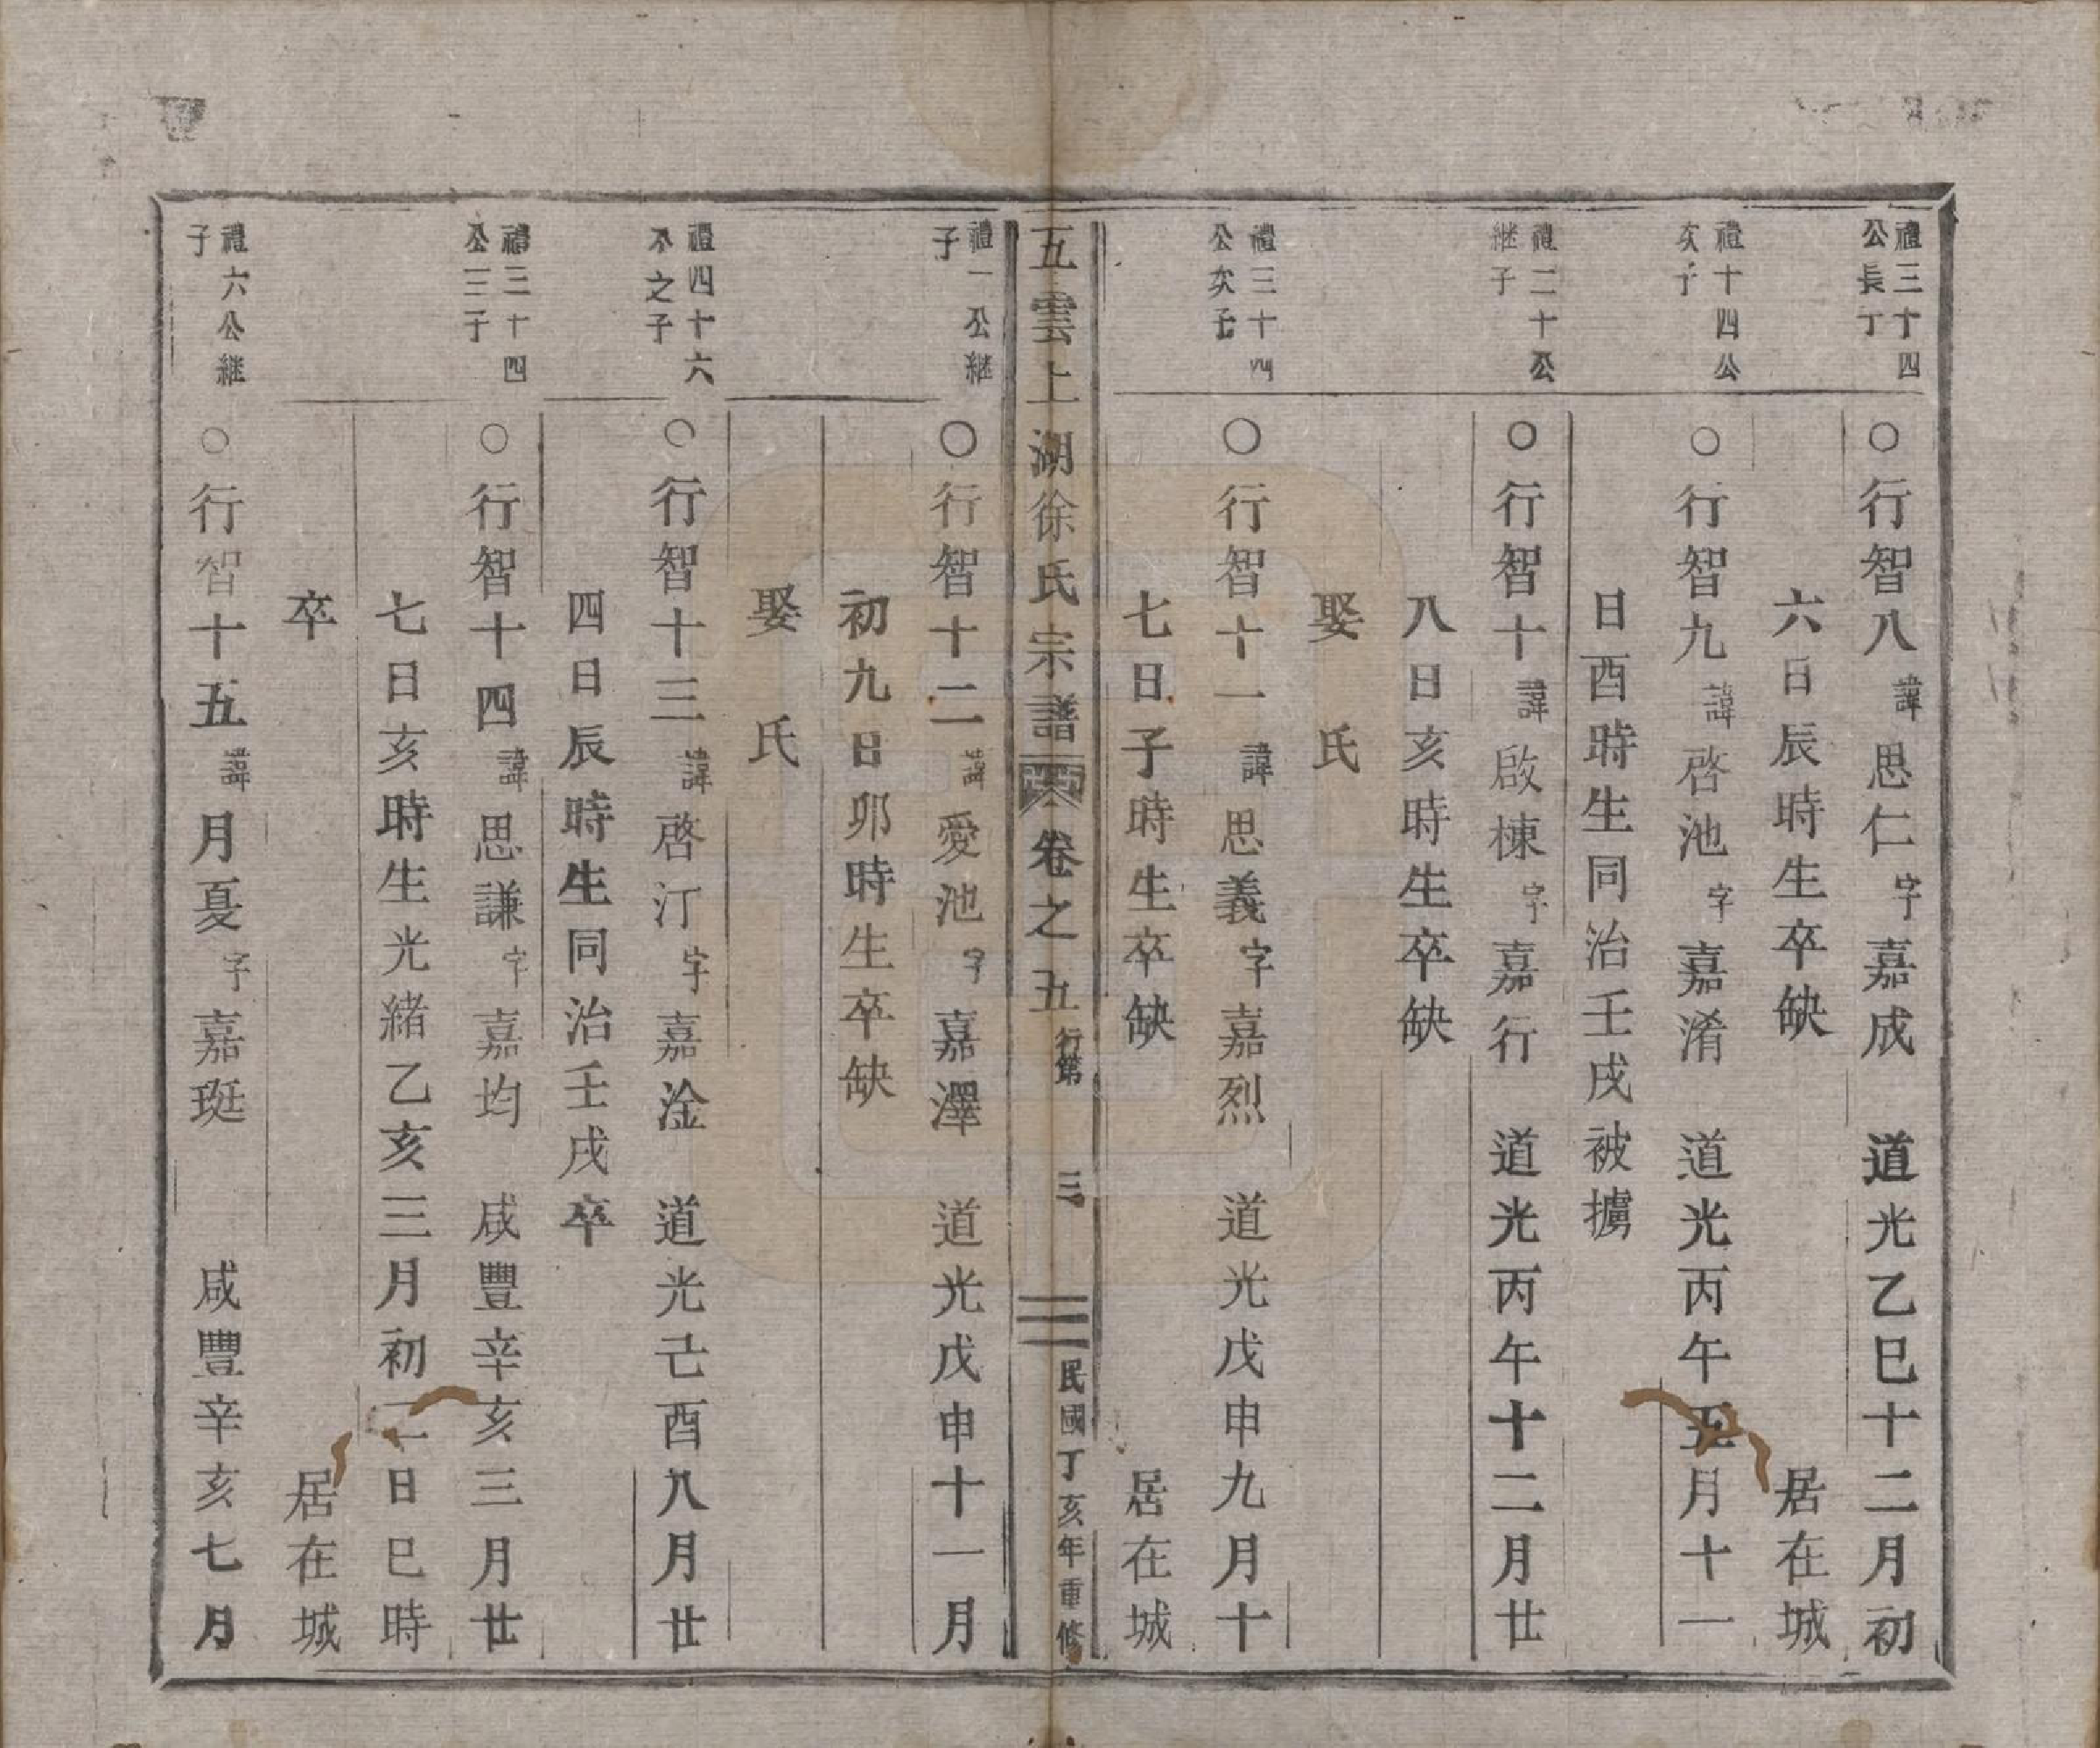 禮三十四
公長丁
○行智八諱思仁字嘉成　道光乙巳十二月初
六日辰時生卒缺　居在城
禮十四公
次子
○行智九諱啓池字嘉淆　道光丙午五月十一
日酉時生同治壬戌被擄
禮二十公
継子
○行智十諱啟棟字嘉行　道光丙午十二月廿
八日亥時生卒缺
娶　氏
禮三十四
公次子
○行智十一諱思義字嘉烈　道光戊申九月十
七日子時生卒缺　居在城
五雲上湖徐氏宗譜　卷之五　行第　三　民國丁亥年重修
禮一公継
子
○行智十二諱愛池字嘉澤　道光戊申十一月
初九日卯時生卒缺
娶　氏
禮四十六
公之子
○行智十三諱啓汀字嘉淦　道光己酉八月廿
四日辰時生同治壬戌卒
禮三十四
公三子
○行智十四諱思謙字嘉均　咸豐辛亥三月廿
七日亥時生光緒乙亥三月初二日巳時
卒　居在城
禮六公継
子
○行智十五諱月戛字嘉珽　咸豐辛亥七月